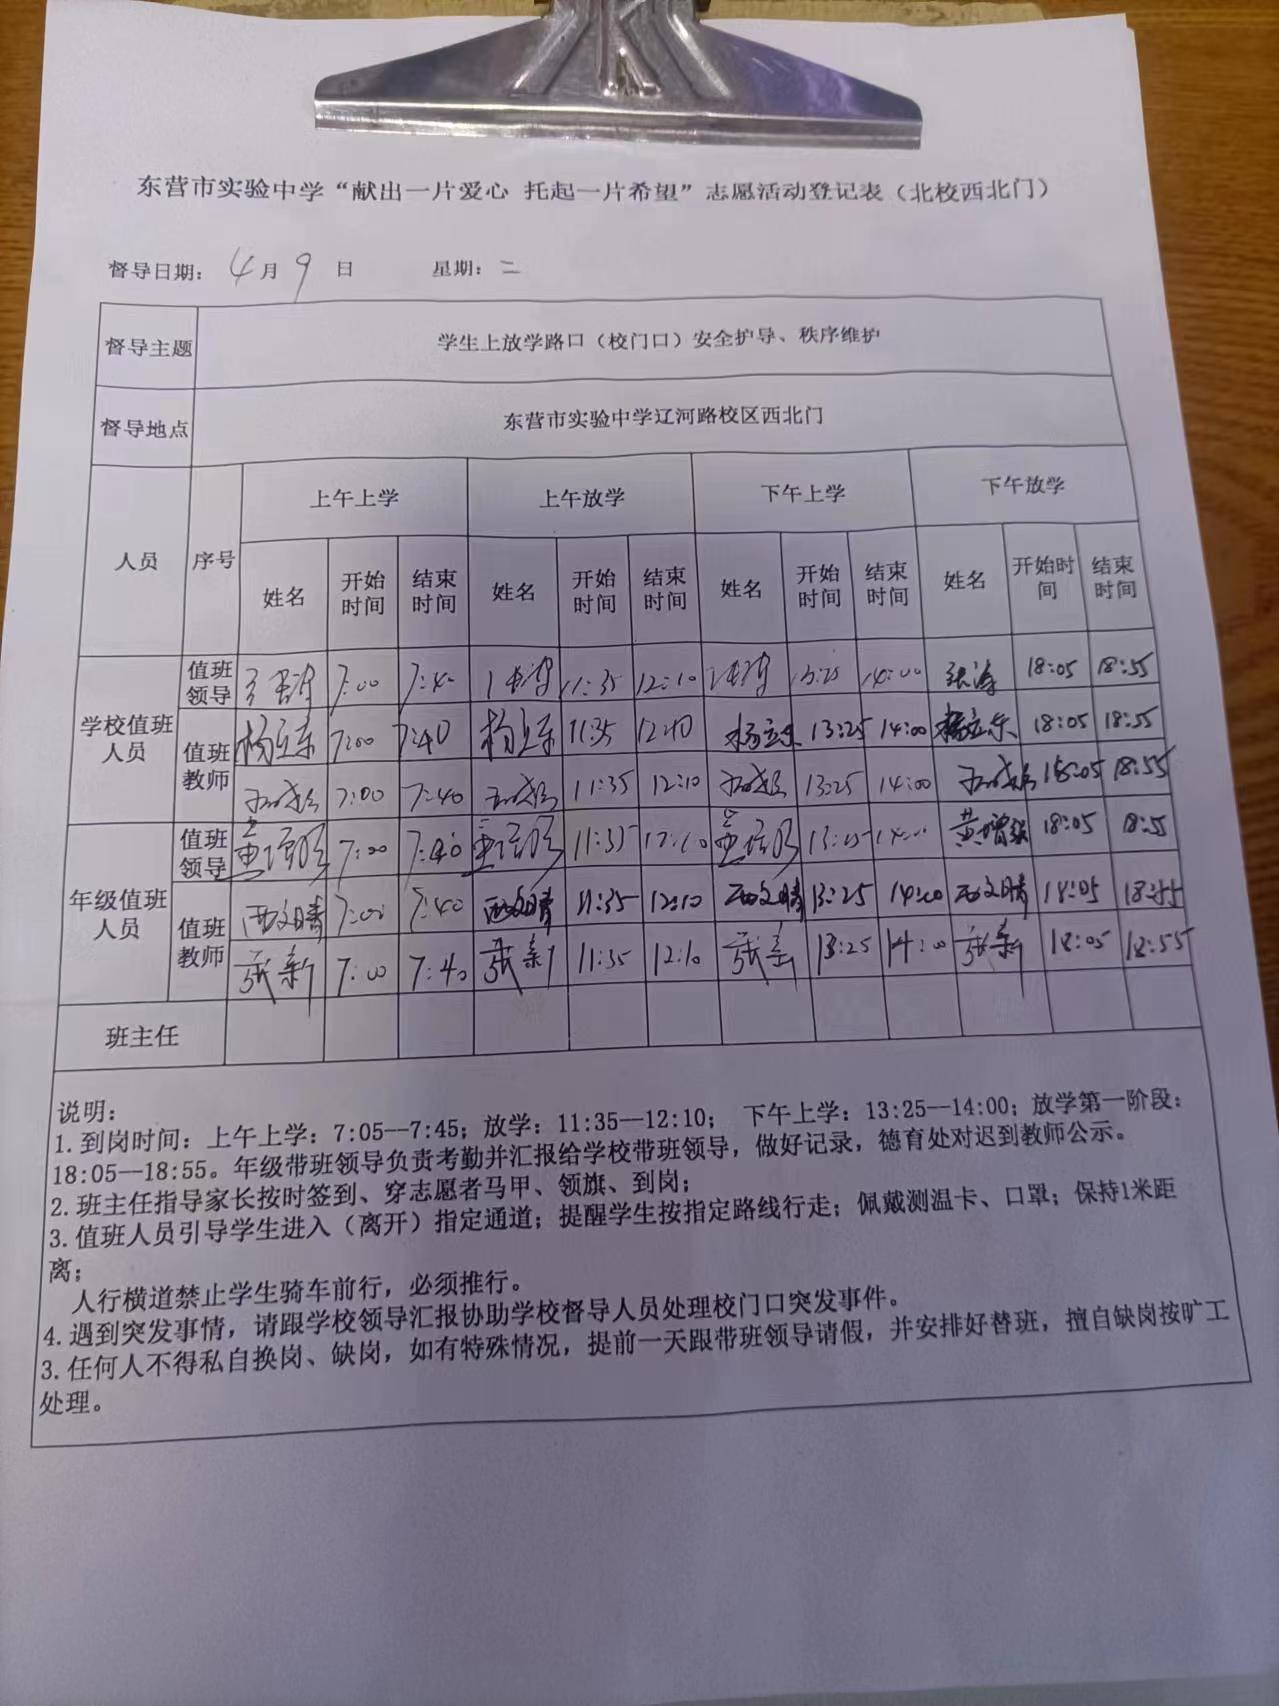 东营市实验中学“献出一片爱心 托起一片希望”志愿活动登记表（北校西北门）
督导日期： 4月9日 星期：二
督导主题 学生上放学路口（校门口）安全护导、秩序维护
督导地点 东营市实验中学辽河路校区西北门
人员 序号 上午上学 上午放学 下午上学 下午放学
姓名 开始时间 结束时间 姓名 开始时间 结束时间 姓名 开始时间 结束时间 姓名 开始时间 结束时间
学校值班人员 值班领导 7:00 7:40 11:35 12:10 14:00 张涛 18:05 18:55
值班教师 杨立东 7:00 7:40 杨立东 11:35 12:10 杨立东 13:25 14:00 杨立东 18:05 18:55
7:00 7:40 11:35 12:10 13:25 14:00 18:05 18:55
年级值班人员 值班领导 7:00 7:40 11:35 12:10 13:25 14:00 18:05 18:55
值班教师 西文晴 7:00 7:40 西文晴 11:35 12:10 西文晴 13:25 14:00 西文晴 18:05 18:55
张新 7:00 7:40 张新 11:35 12:10 张新 13:25 14:00 张新 18:05 18:55
班主任
说明：
1. 到岗时间：上午上学：7:05--7:45；放学：11:35--12:10； 下午上学：13:25--14:00；放学第一阶段：
18:05--18:55。年级带班领导负责考勤并汇报给学校带班领导，做好记录，德育处对迟到教师公示。
2. 班主任指导家长按时签到、穿志愿者马甲、领旗、到岗；
3. 值班人员引导学生进入（离开）指定通道；提醒学生按指定路线行走；佩戴测温卡、口罩；保持1米距
离；
人行横道禁止学生骑车前行，必须推行。
4. 遇到突发事情，请跟学校领导汇报协助学校督导人员处理校门口突发事件。
3. 任何人不得私自换岗、缺岗，如有特殊情况，提前一天跟带班领导请假，并安排好替班，擅自缺岗按旷工
处理。